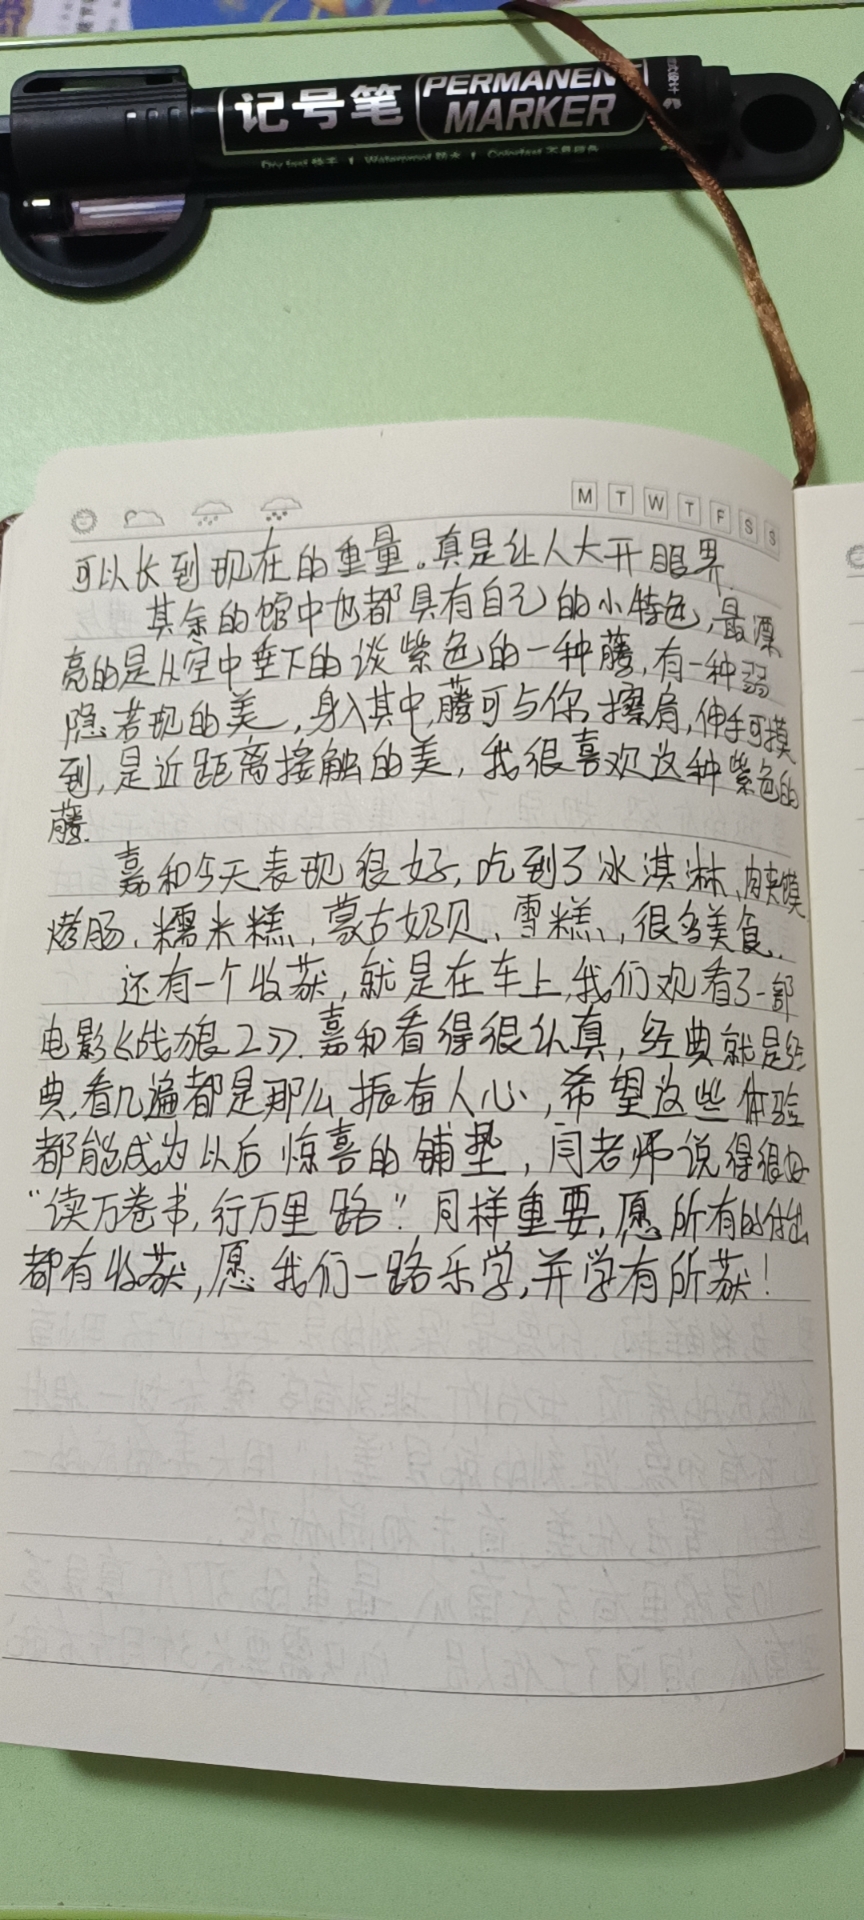 记号笔 PERMANENT MARKER
Dry fast 快干 | Waterproof 防水 | Colorfast 不易褪色
M T W T F S S
可以长到现在的重量。真是让人大开眼界.
其余的馆中也都具有自己的小特色,最漂
亮的是从空中垂下的谈紫色的一种藤,有一种弱
隐若现的美,身入其中,藤可与你擦肩,伸手可摸
到,是近距离接触的美,我很喜欢这种紫色的
藤.
嘉和今天表现很好,吃到了冰淇淋、肉夹馍
烤肠、糯米糕、蒙古奶贝、雪糕、,很多美食.
还有一个收获,就是在车上,我们观看了一部
电影《战狼2》.嘉和看得很认真,经典就是经
典,看几遍都是那么振奋人心,希望这些体验
都能成为以后惊喜的铺垫,闫老师说得很好
“读万卷书,行万里路”同样重要,愿所有的付出
都有收获,愿我们一路乐学,并学有所获!